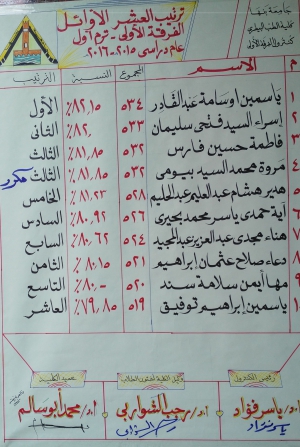 جامعة بنها
كلية الطب البيطرى
ترتيب العشر الأوائل
الفرقة الأولى - ترم أول
عام دراسى ٢٠١٥-٢٠١٦
م الاســـم المجموع النسبة الترتيب
١ ياسمين أوسامة عبد القادر ٥٣٤ ٨٢,١٥٪ الأول
٢ إسراء السيد فتحى سليمان ٥٣٣ ٨٢,٪ الثانى
٣ فاطمة حسين فارس ٥٣٢ ٨١,٨٥٪ الثالث
٤ مروة محمد السيد بيومى ٥٣٢ ٨١,٨٥٪ الثالث مكرر
٥ هدير هشام عبد العليم عبد الحليم ٥٢٨ ٨١,٢٣٪ الخامس
٦ آية حمدى ياسر محمد بحيرى ٥٢٦ ٨٠,٩٢٪ السادس
٧ هناء مجدى عبد العزيز عبد المجيد ٥٢٤ ٨٠,٦٢٪ السابع
٨ دعاء صلاح عثمان إبراهيم ٥٢١ ٨٠,١٥٪ الثامن
٩ مها أيمن سلامة سند ٥٢٠ ٨٠,-٪ التاسع
١٠ ياسمين إبراهيم توفيق ٥١٩ ٧٩,٨٥٪ العاشر
رئيس الكنترول وكيل الكلية لشئون الطلاب عميد الكلية
أ.د/ ياسر فؤاد أ.د/ رجب الشواربى أ.د/ محمد أبو سالم